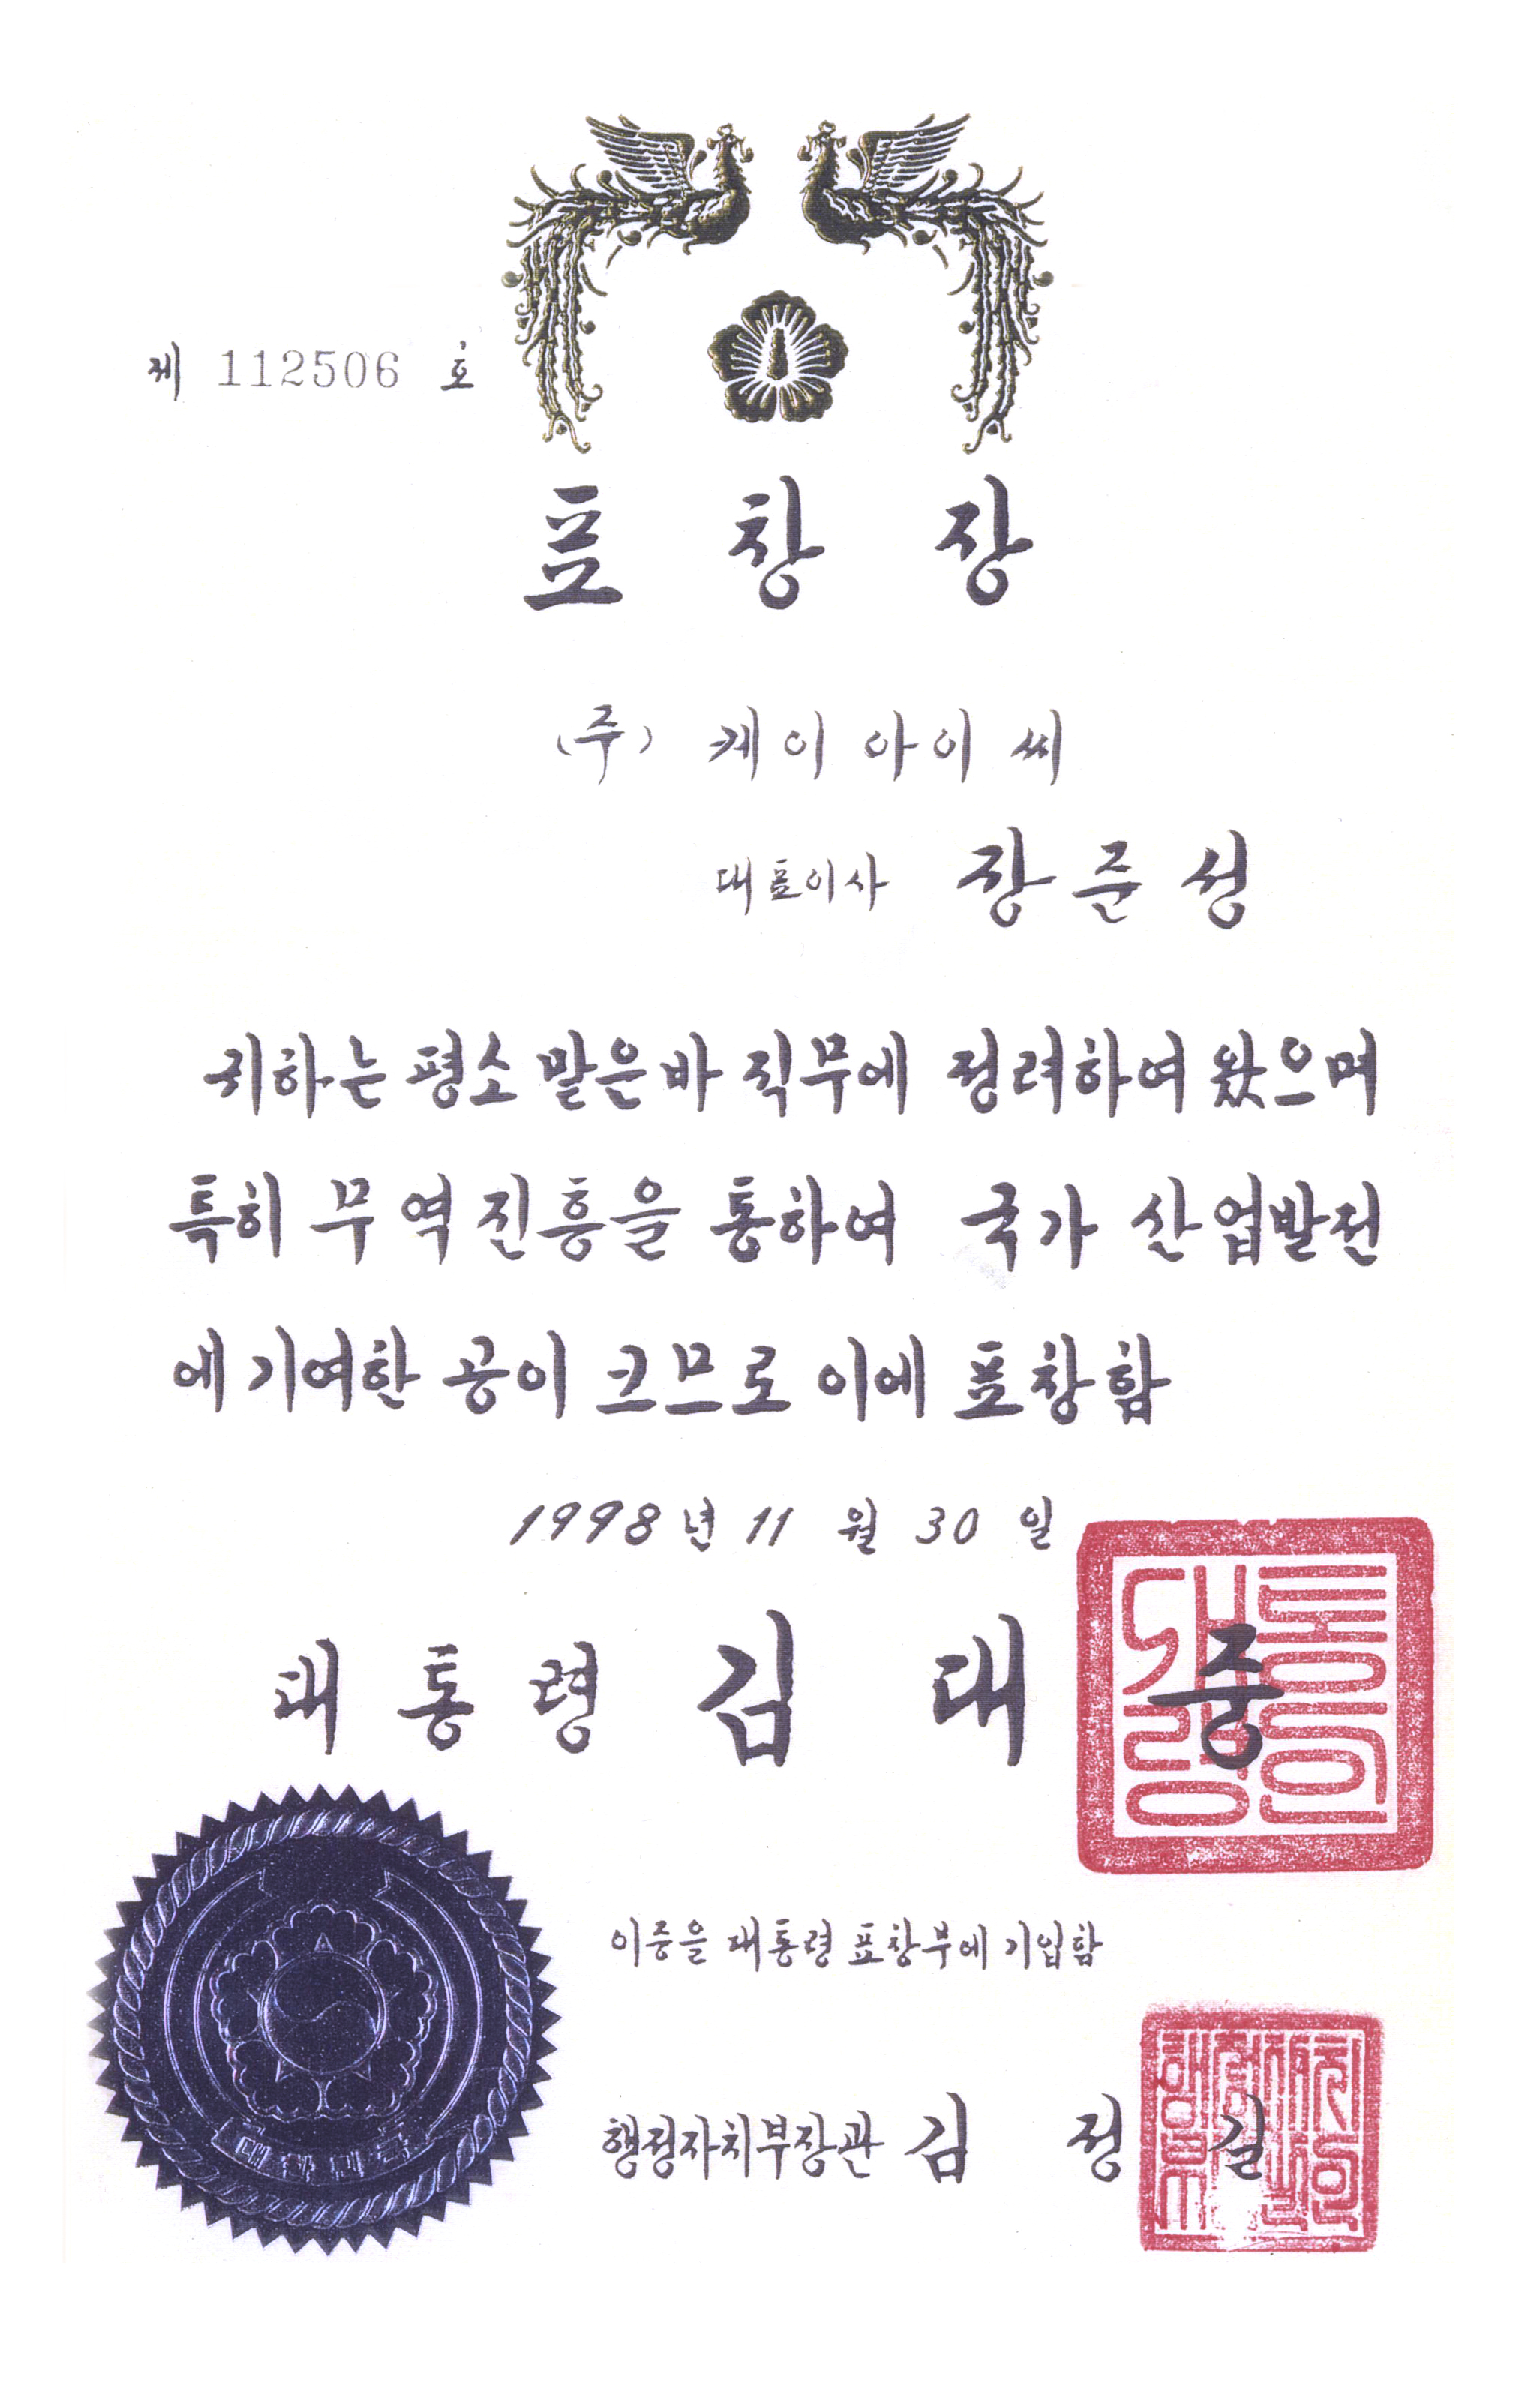 제 112506 호
표 창 장
(주) 케이 아이 씨
대표이사 장 준 성
귀하는 평소 맡은바 직무에 정려하여 왔으며
특히 무역진흥을 통하여 국가 산업발전
에 기여한 공이 크므로 이에 표창함
1998년 11 월 30 일
대 통 령 김 대 중
대통령인
이증을 대통령 표창부에 기입함
행정자치부장관 김 정 길
대한민국